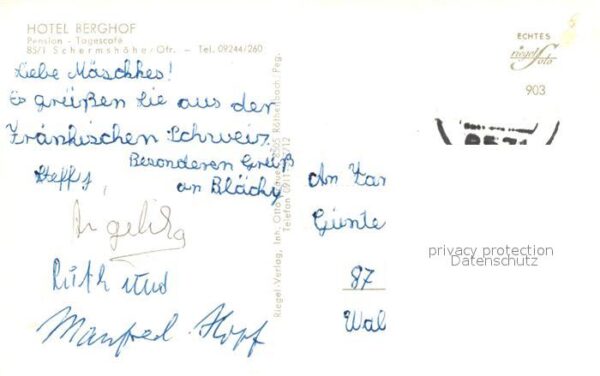 HOTEL BERGHOF
Pension - Tagescafé
85/1 Schermshöhe/Ofr. - Tel. 09244/260
Liebe Mäschkes!
Es grüßen Sie aus der
Fränkischen Schweiz
Besonderen Gruß
an Bläcky
Steffi,
Angelika
Ruth und
Manfred Hopf
Riegel-Verlag, Inh. Otto
Röthenbach/Peg.
Telefon
ECHTES
riegel Foto
903
8571
An
Günte
87
Wal
privacy protection
Datenschutz